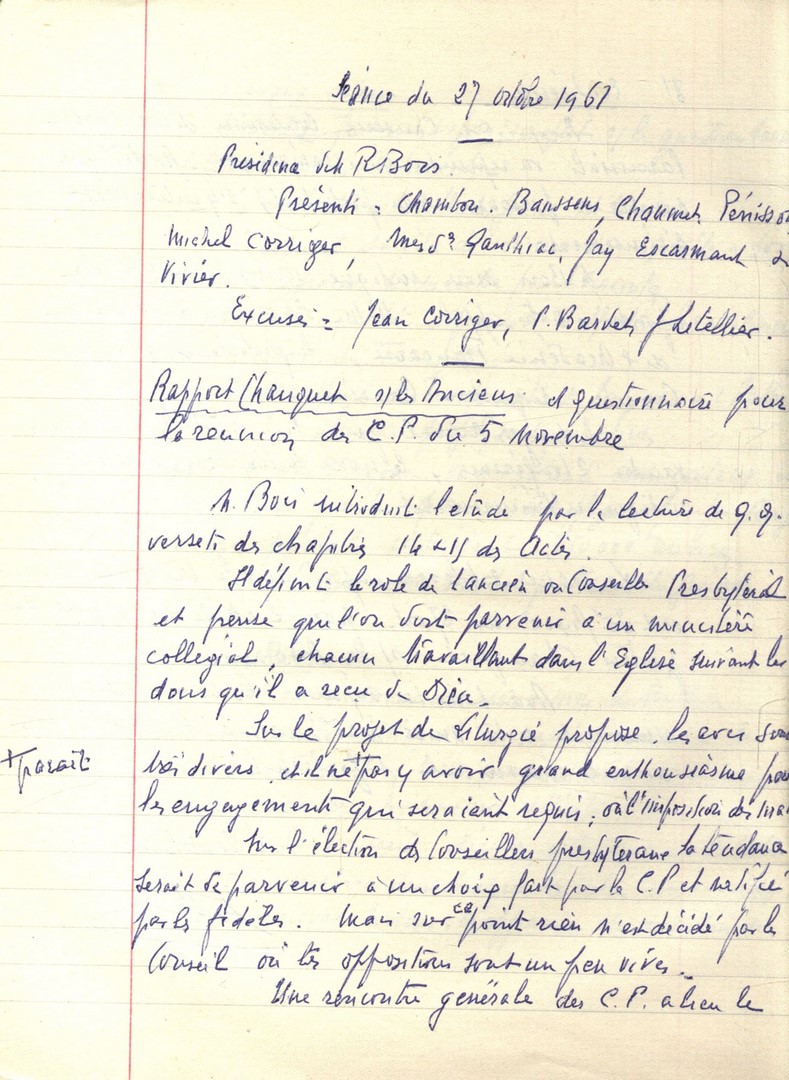 Séance du 27 octobre 1967
Présidence de M R Bois.
Présents = Chambon. Banssens, Chaumet, Pénisson
Michel Corriger, Mesds Gauthier, Jay Escarmant
Vivier.
Excusés = Jean Corriger, P. Bardet, J Letellier.
Rapport Chauquet s/les Anciens et questionnaire pour
la réunion des C.P. du 5 novembre
M. Bois introduit l'étude par la lecture de q.q.
versets des chapitres 14 & 15 des Actes.
Il définit le role de l'ancien ou Conseiller Presbytéral
et pense que l'on doit parvenir à un ministère
collégial, chacun travaillant dans l'Eglise suivant les
dons qu'il a reçu de Dieu.
Sur le projet de Liturgie proposé, les avis sont
+ parait
très divers, et il ne + pas y avoir grand enthousiasme pour
les engagements qui seraient requis, ou l'imposition des
Sur l'élection des Conseillers presbyteraux la tendance
serait de parvenir à un choix fait par le C.P et ratifié
par les fidèles. Mais sur ce point rien n'est décidé par le
Conseil où les oppositions sont un peu vives.
Une rencontre générale des C.P. a lieu le